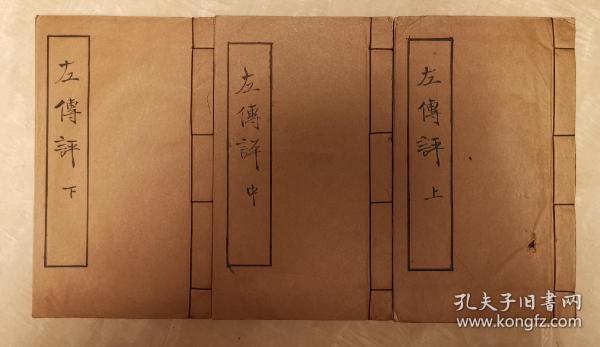 左傳評 上
左傳評 中
左傳評 下
孔夫子旧書网
www.kongfz.com